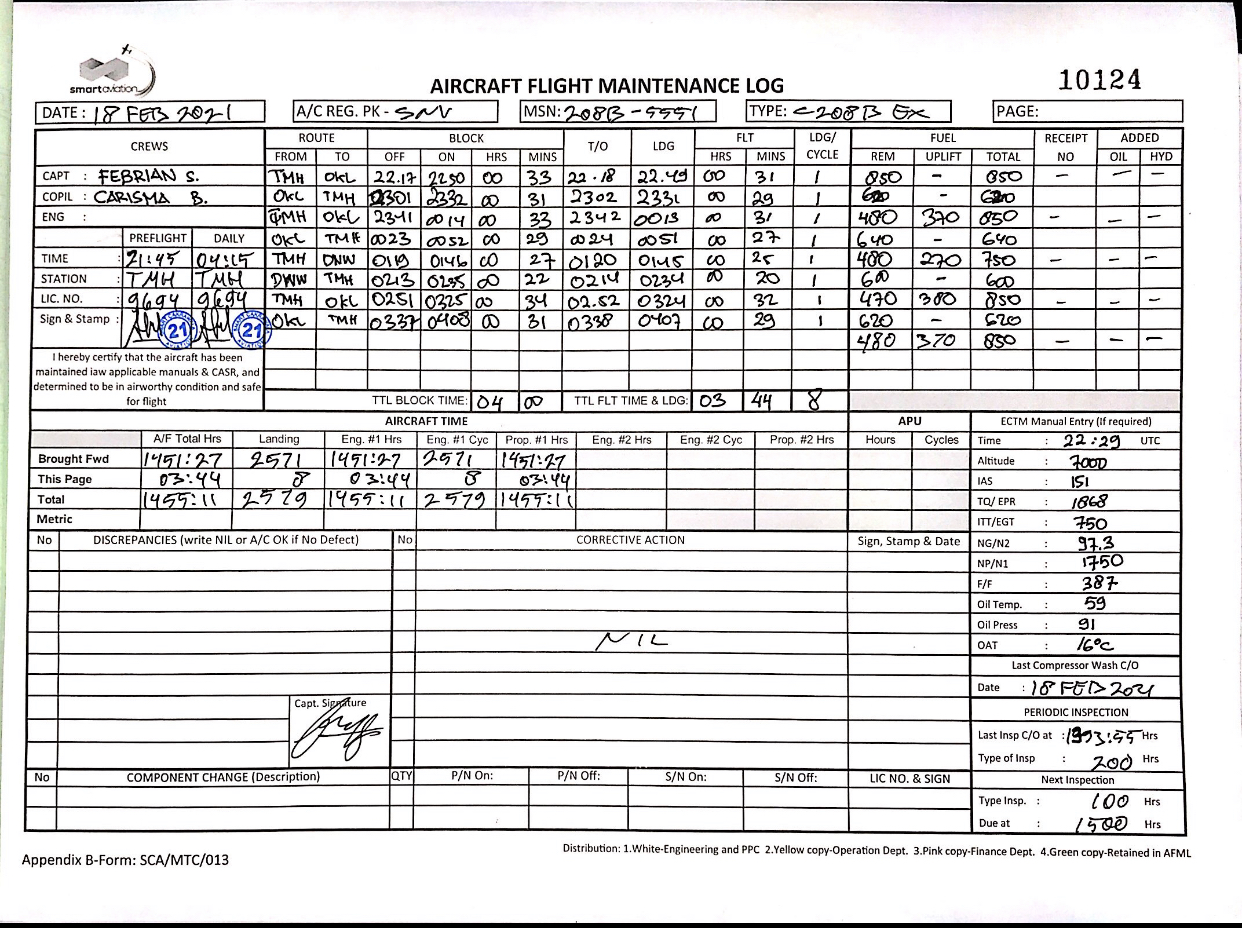 smartaviation
AIRCRAFT FLIGHT MAINTENANCE LOG
10124
DATE : 18 FEB 2021 A/C REG. PK - SNV MSN: 208B-5551 TYPE: C208B EX PAGE:
CREWS ROUTE BLOCK T/O LDG FLT LDG/ CYCLE FUEL RECEIPT NO ADDED
FROM TO OFF ON HRS MINS HRS MINS REM UPLIFT TOTAL OIL HYD
CAPT : FEBRIAN S. TMH OKL 22.17 2250 00 33 22.18 22.49 00 31 1 850 - 850 - - -
COPIL : CARISMA B. OKL TMH 2301 2332 00 31 2302 2331 00 29 1 620 - 620
ENG : TMH OKL 2341 0014 00 33 2342 0013 00 31 1 480 370 850 - - -
PREFLIGHT DAILY OKL TMH 0023 0052 00 29 0024 0051 00 27 1 640 - 640
TIME : 21:45 04:15 TMH DNW 0119 0146 00 27 0120 0145 00 25 1 480 270 750 - - -
STATION : TMH TMH DNW TMH 0213 0235 00 22 0214 0234 00 20 1 600 - 600
LIC. NO. : 9694 9694 TMH OKL 0251 0325 00 34 02.52 0324 00 32 1 470 380 850 - - -
Sign & Stamp : 21 21 OKL TMH 0337 0408 00 31 0338 0407 00 29 1 620 - 620
480 370 850 - - -
I hereby certify that the aircraft has been
maintained iaw applicable manuals & CASR, and
determined to be in airworthy condition and safe
for flight
TTL BLOCK TIME: 04 00 TTL FLT TIME & LDG: 03 44 8
AIRCRAFT TIME APU ECTM Manual Entry (If required)
A/F Total Hrs Landing Eng. #1 Hrs Eng. #1 Cyc Prop. #1 Hrs Eng. #2 Hrs Eng. #2 Cyc Prop. #2 Hrs Hours Cycles Time : 22:29 UTC
Brought Fwd 1451:27 2571 1451:27 2571 1451:27 Altitude : 7000
This Page 03:44 8 03:44 8 03:44 IAS : 151
Total 1455:11 2579 1455:11 2579 1455:11 TQ/ EPR : 1868
Metric ITT/EGT : 750
No DISCREPANCIES (write NIL or A/C OK if No Defect) No CORRECTIVE ACTION Sign, Stamp & Date NG/N2 : 97.3
NP/N1 : 1750
F/F : 387
Oil Temp. : 59
Oil Press : 91
NIL OAT : 16°C
Last Compressor Wash C/O
Date : 18 FEB 2021
Capt. Signature
PERIODIC INSPECTION
Last Insp C/O at : 1393:55 Hrs
Type of Insp : 200 Hrs
No COMPONENT CHANGE (Description) QTY P/N On: P/N Off: S/N On: S/N Off: LIC NO. & SIGN Next Inspection
Type Insp. : 100 Hrs
Due at : 1500 Hrs
Distribution: 1.White-Engineering and PPC 2.Yellow copy-Operation Dept. 3.Pink copy-Finance Dept. 4.Green copy-Retained in AFML
Appendix B-Form: SCA/MTC/013